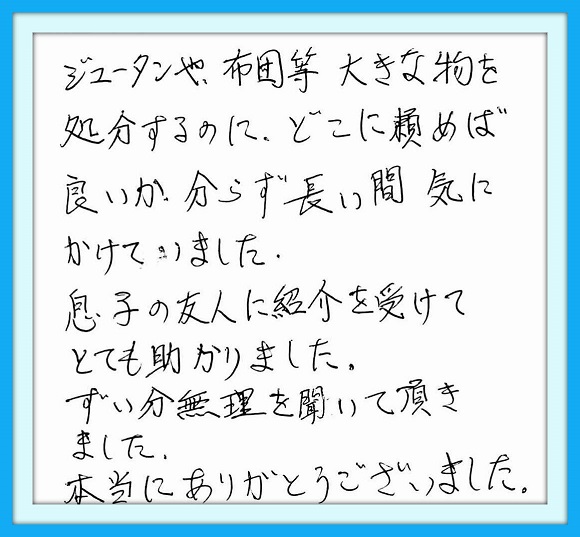 ジュータンや、布団等 大きな物を
処分するのに、どこに頼めば
良いか、分らず長い間 気に
かけていました.
息子の友人に紹介を受けて
とても助かりました。
ずい分無理を聞いて頂き
ました.
本当にありがとうございました。